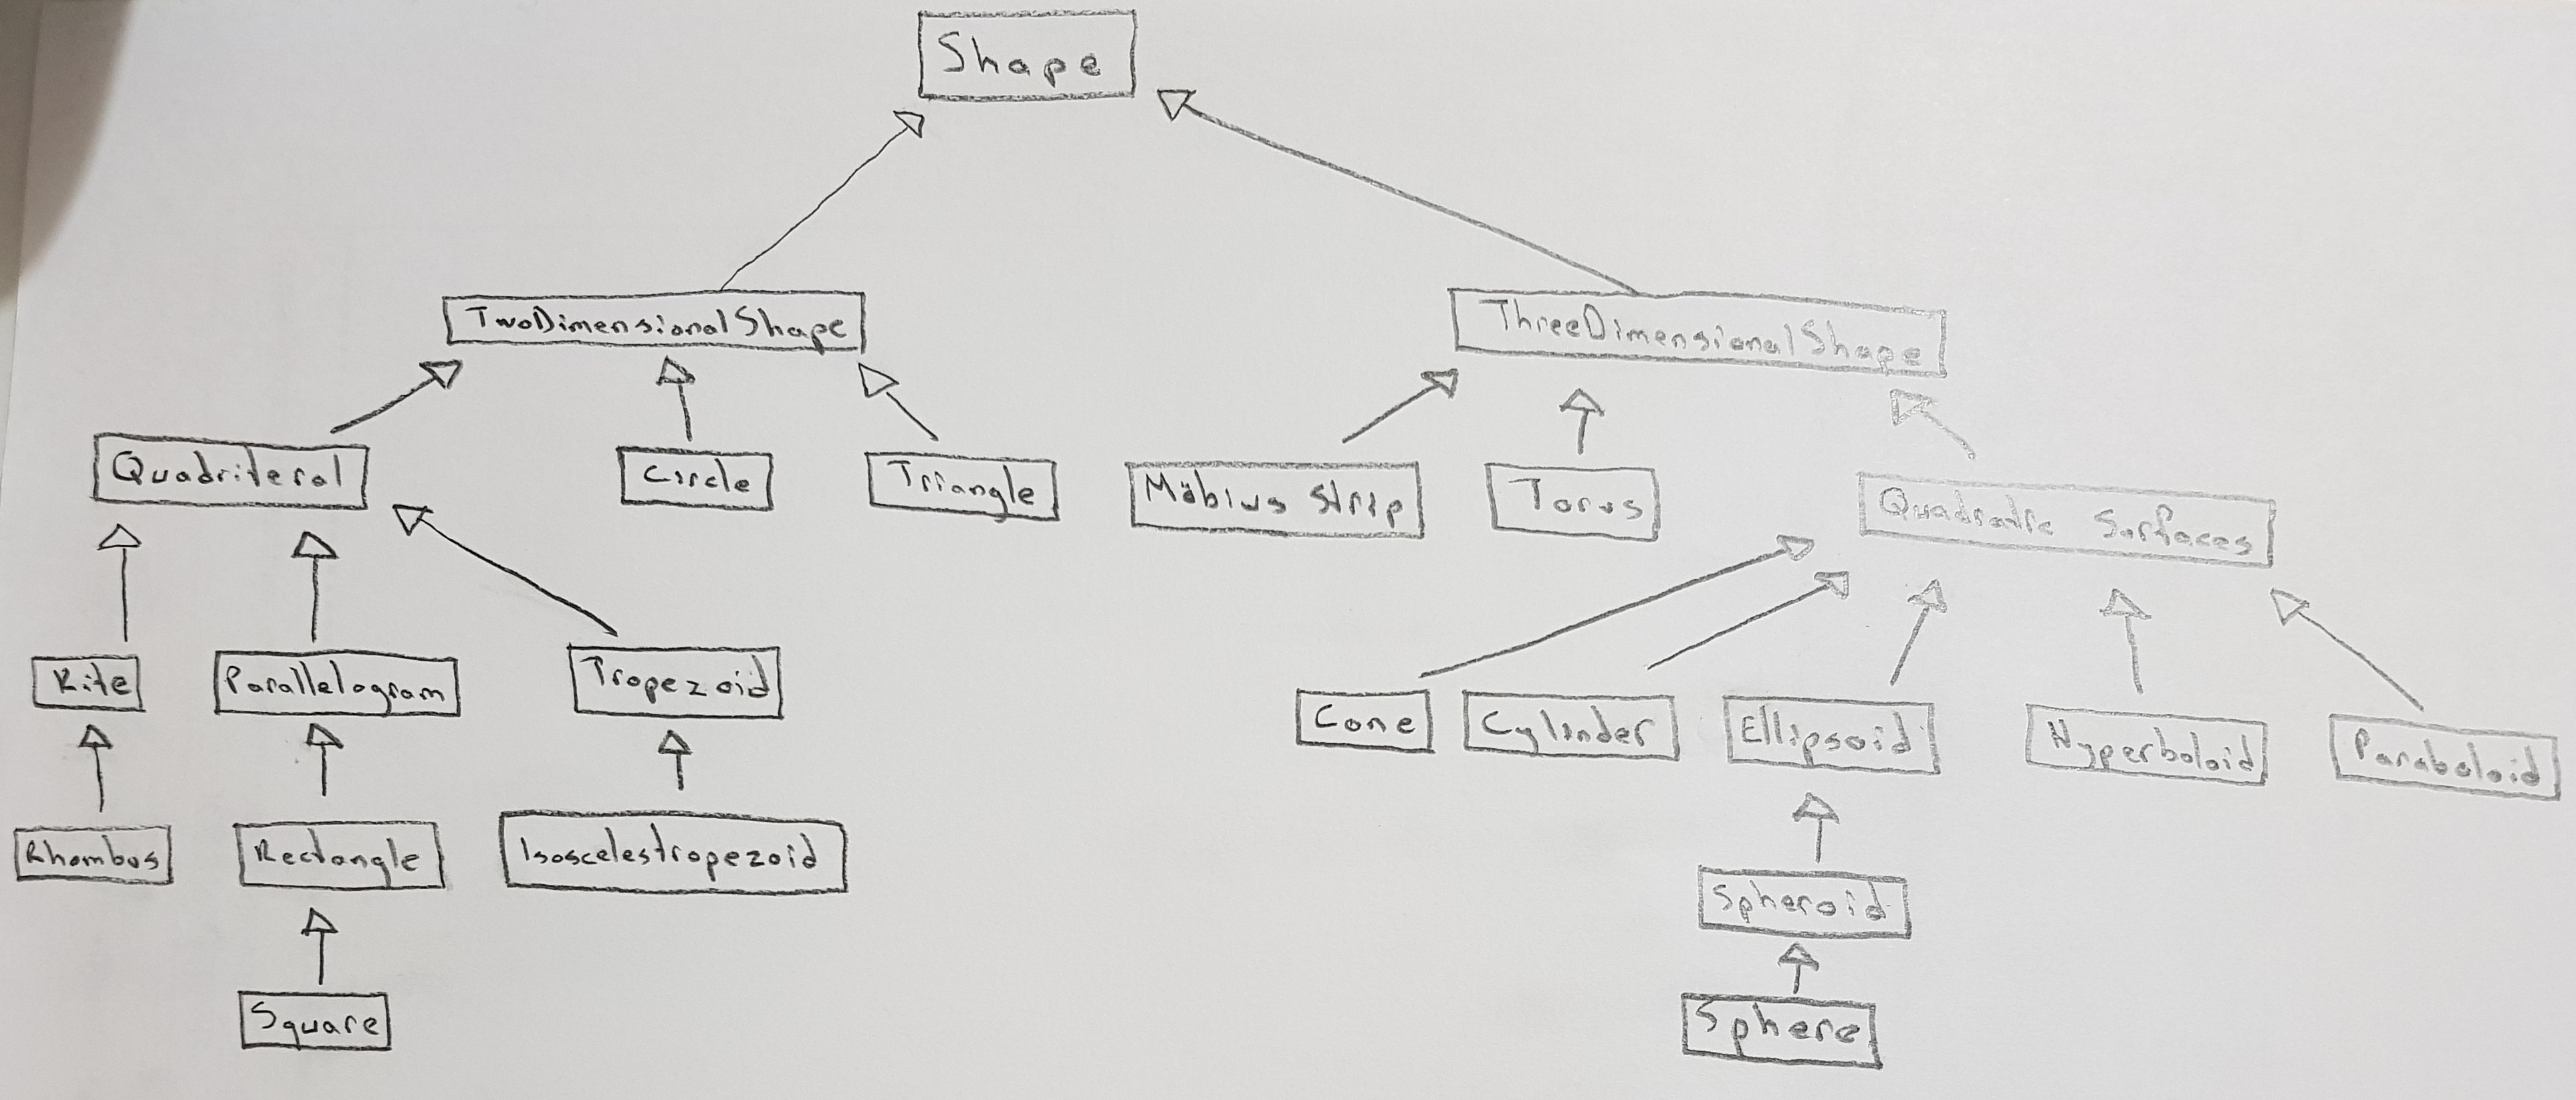 Shape
TwoDimensionalShape
ThreeDimensionalShape
Quadriteral
Circle
Triangle
Möbius Strip
Torus
Quadratic Surfaces
Kite
Parallelogram
Tropezoid
Cone
Cylinder
Ellipsoid
Hyperboloid
Paraboloid
Rhombus
Rectangle
Isoscelestropezoid
Spheroid
Square
Sphere